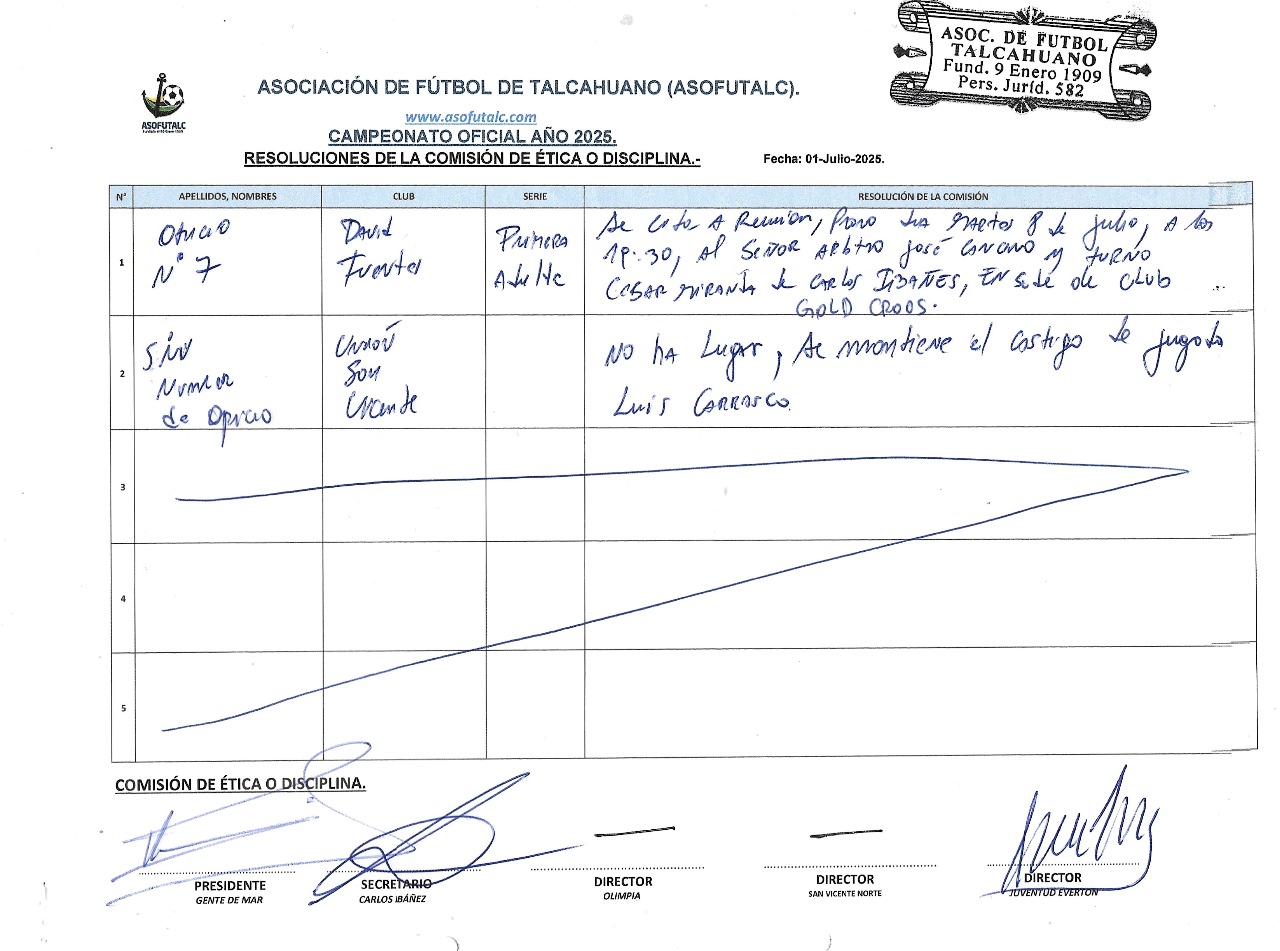 ASOC. DE FUTBOL
TALCAHUANO
Fund. 9 Enero 1909
Pers. Juríd. 582
ASOFUTALC
ASOCIACIÓN DE FÚTBOL DE TALCAHUANO (ASOFUTALC).
www.asofutalc.com
CAMPEONATO OFICIAL AÑO 2025.
RESOLUCIONES DE LA COMISIÓN DE ÉTICA O DISCIPLINA.-
Fecha: 01-Julio-2025.
N° APELLIDOS, NOMBRES CLUB SERIE RESOLUCIÓN DE LA COMISIÓN
1
Oficio
N° 7
David
Fuentes
Primera
Adulta
Se cita A Reunion, para dia Martes 8 de julio, A las
19:30, Al SEÑOR ARbitro José y turno
CESAR MIRANDA de CARLOS IBAÑES, EN sede de club
GOLD CROOS.
2
SIN
Numero
de Oficio
Unión
San
Vicente
NO ha Lugar, Se mantiene el castigo de jugador
Luis CARRASCO.
3
4
5
COMISIÓN DE ÉTICA O DISCIPLINA.
PRESIDENTE
GENTE DE MAR
SECRETARIO
CARLOS IBÁÑEZ
DIRECTOR
OLIMPIA
DIRECTOR
SAN VICENTE NORTE
DIRECTOR
JUVENTUD EVERTON